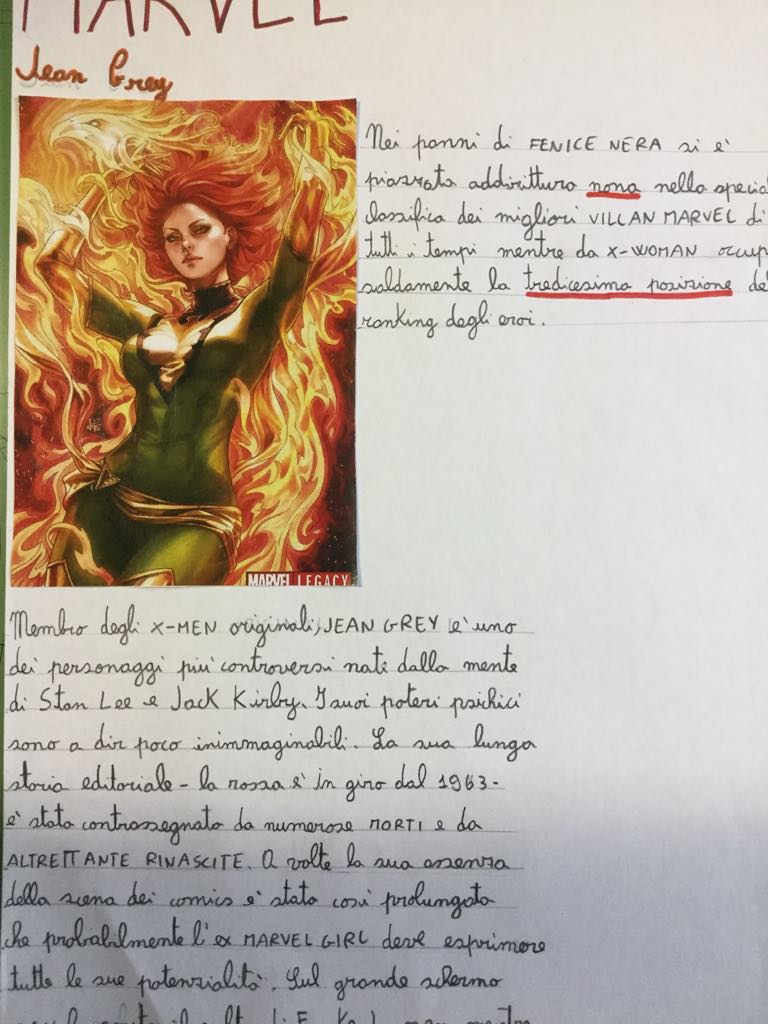 MARVEL
Jean Grey
Nei panni di FENICE NERA si è
piazzata addirittura nona nella special
classifica dei migliori VILLAN MARVEL di
tutti i tempi mentre da X-WOMAN occup
saldamente la tredicesima posizione del
ranking degli eroi.
MARVEL LEGACY
Membro degli X-MEN originali, JEAN GREY è uno
dei personaggi più controversi nati dalla mente
di Stan Lee e Jack Kirby. I suoi poteri psichici
sono a dir poco inimmaginabili. La sua lunga
storia editoriale - la rossa è in giro dal 1963 -
è stata contrassegnata da numerose MORTI e da
ALTRETTANTE RINASCITE. A volte la sua assenza
dalla scena dei comics è stata così prolungata
che probabilmente l'ex MARVEL GIRL deve esprimere
tutte le sue potenzialità. Sul grande schermo